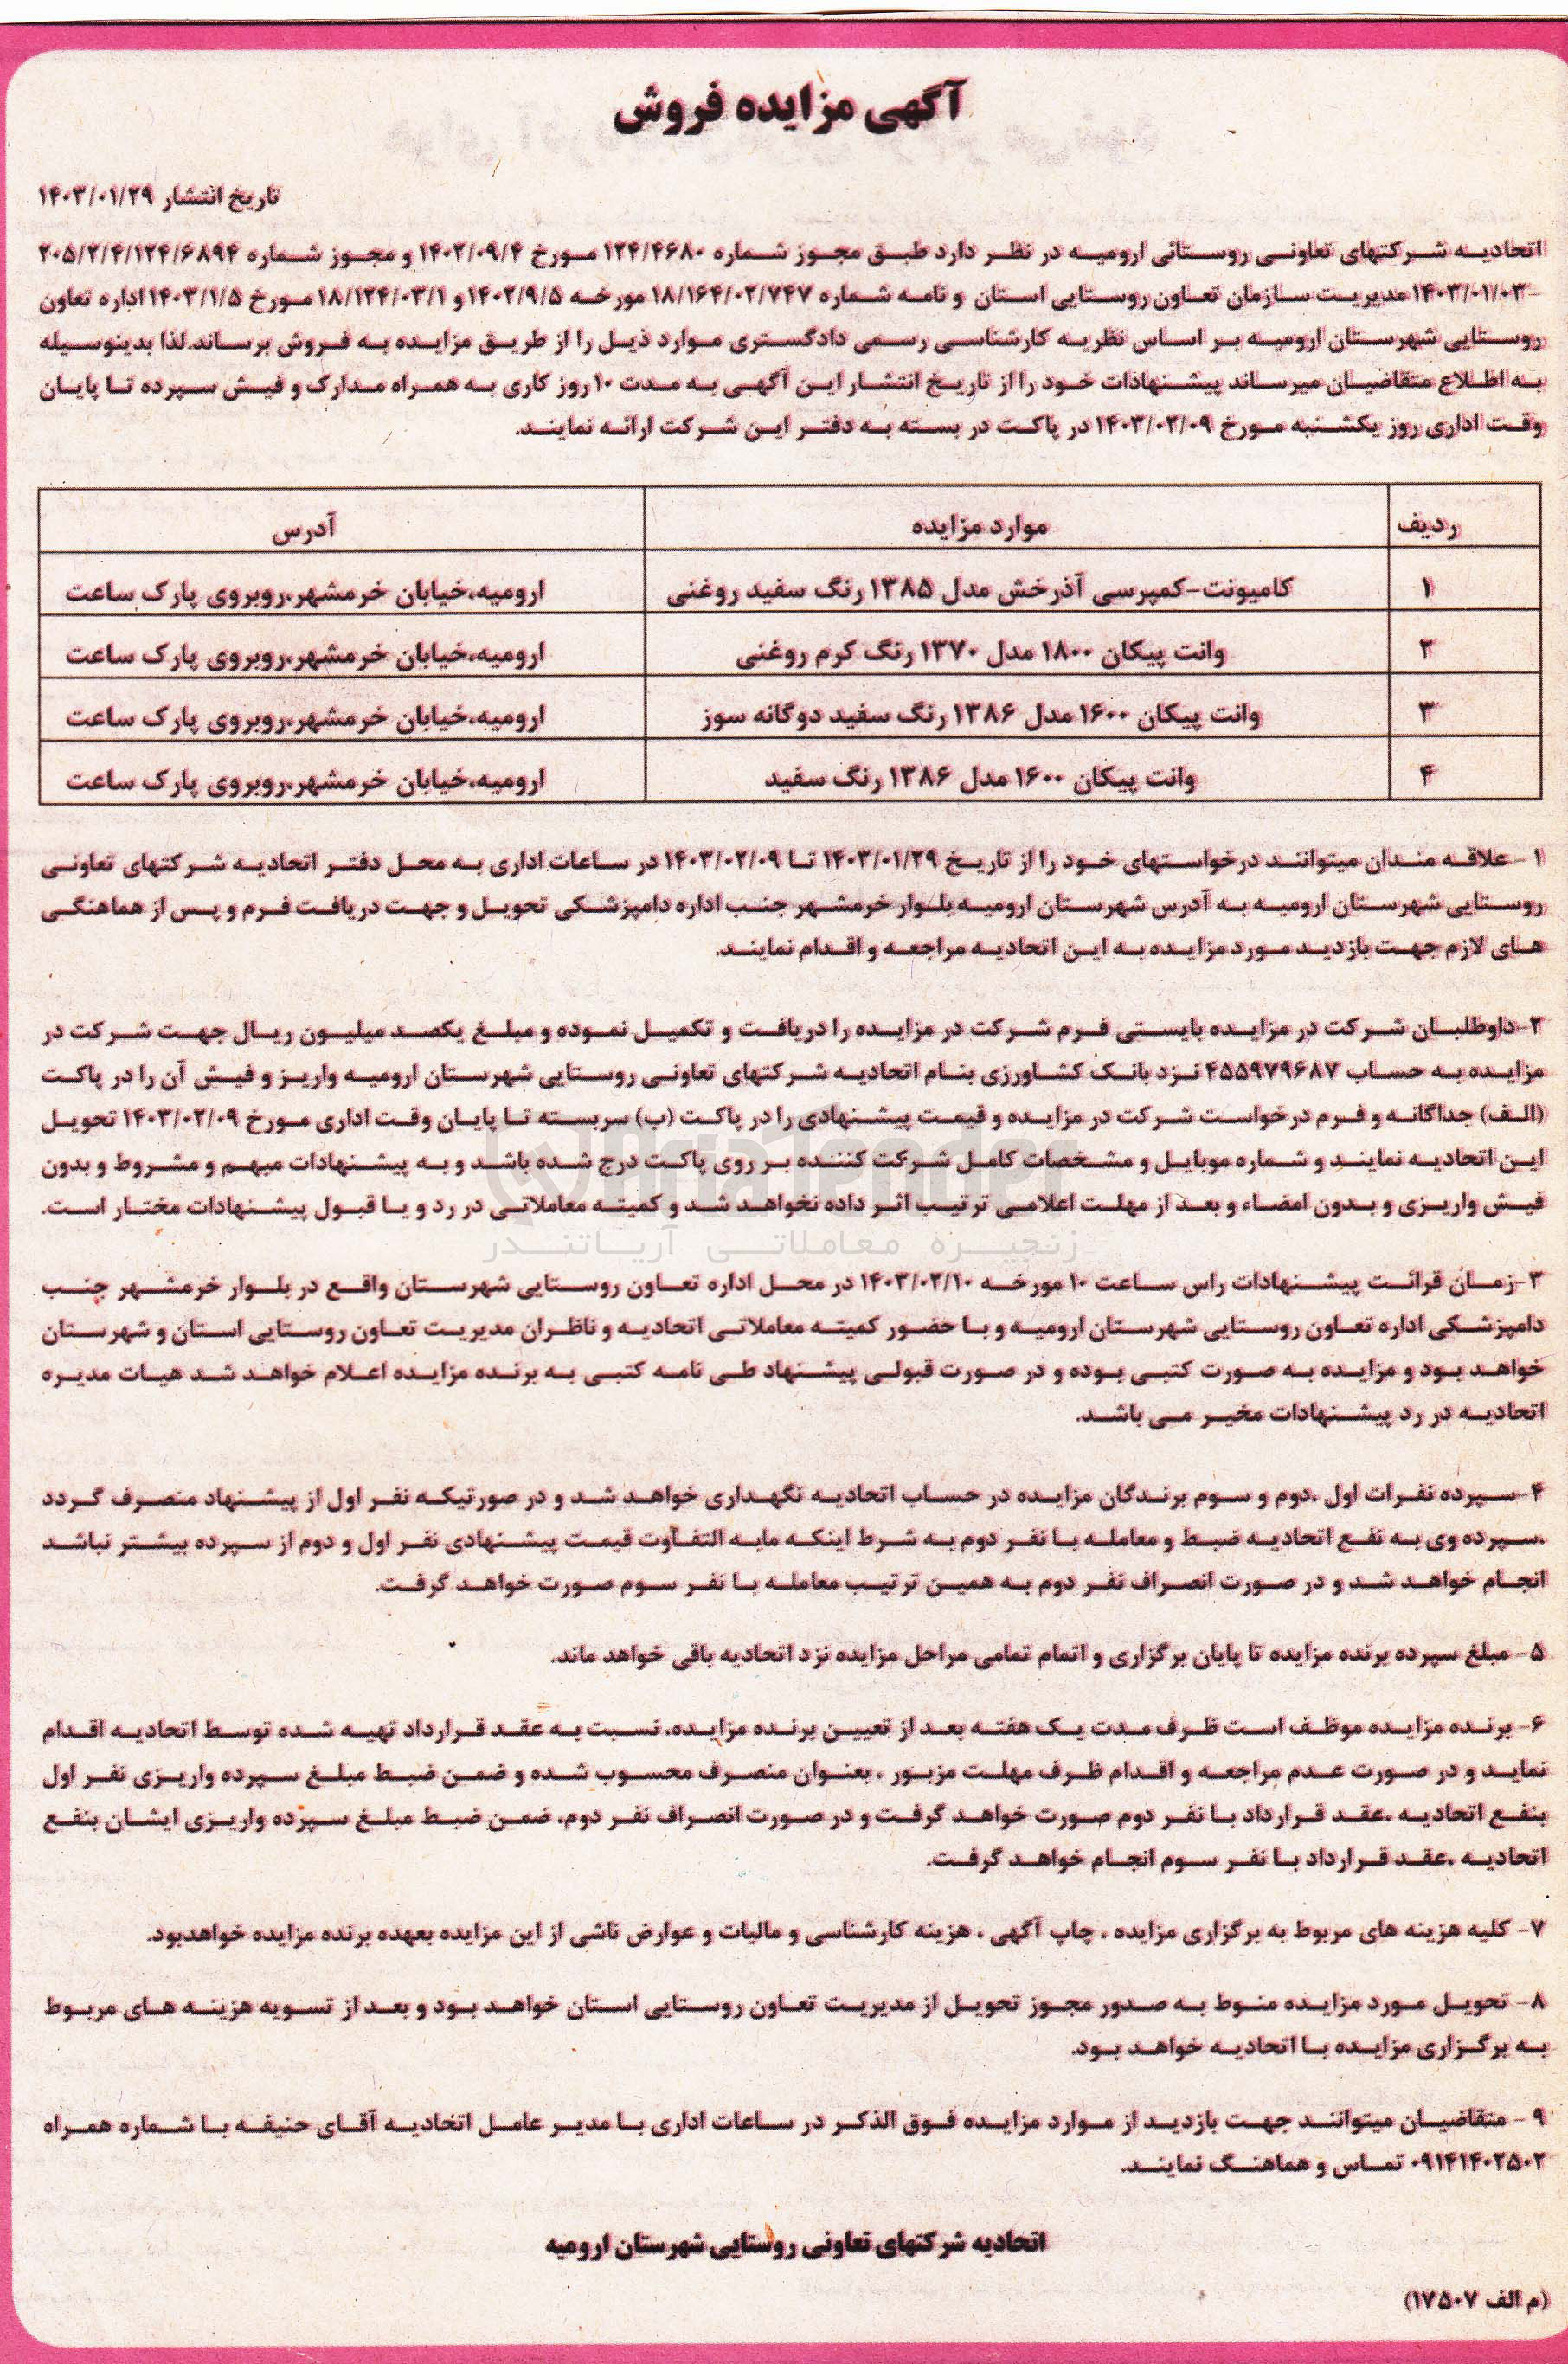 آگهی مزایده فروش
تاریخ انتشار ۱۴۰۳/۰۱/۲۹
اتحادیه شرکتهای تعاونی روستائی ارومیه در نظر دارد طبق مجوز شماره ۱۲۴/۴۶۸۰ مورخ ۱۴۰۲/۰۹/۴ و مجوز شماره ۲۰۵/۲/۴/۱۲۴/۶۸۹۴
-۱۴۰۳/۰۱/۰۳ مدیریت سازمان تعاون روستایی استان و نامه شماره ۱۸/۱۶۴/۰۲/۷۴۷ مورخه ۱۴۰۲/۹/۵ و ۱۸/۱۲۴/۰۳/۱ مورخ ۱۴۰۳/۱/۵ اداره تعاون
روستایی شهرستان ارومیه بر اساس نظریه کارشناسی رسمی دادگستری موارد ذیل را از طریق مزایده به فروش برساند.لذا بدینوسیله
به اطلاع متقاضیان میرساند پیشنهادات خود را از تاریخ انتشار این آگهی به مدت ۱۰ روز کاری به همراه مدارک و فیش سپرده تا پایان
وقت اداری روز یکشنبه مورخ ۱۴۰۳/۰۲/۰۹ در پاکت در بسته به دفتر این شرکت ارائه نمایند.
ردیف موارد مزایده آدرس
۱ کامیونت-کمپرسی آذرخش مدل ۱۳۸۵ رنگ سفید روغنی ارومیه،خیابان خرمشهر،روبروی پارک ساعت
۲ وانت پیکان ۱۸۰۰ مدل ۱۳۷۰ رنگ کرم روغنی ارومیه،خیابان خرمشهر،روبروی پارک ساعت
۳ وانت پیکان ۱۶۰۰ مدل ۱۳۸۶ رنگ سفید دوگانه سوز ارومیه،خیابان خرمشهر،روبروی پارک ساعت
۴ وانت پیکان ۱۶۰۰ مدل ۱۳۸۶ رنگ سفید ارومیه،خیابان خرمشهر،روبروی پارک ساعت
۱ - علاقه مندان میتوانند درخواستهای خود را از تاریخ ۱۴۰۳/۰۱/۲۹ تا ۱۴۰۳/۰۲/۰۹ در ساعات اداری به محل دفتر اتحادیه شرکتهای تعاونی
روستایی شهرستان ارومیه به آدرس شهرستان ارومیه بلوار خرمشهر جنب اداره دامپزشکی تحویل و جهت دریافت فرم و پس از هماهنگی
های لازم جهت بازدید مورد مزایده به این اتحادیه مراجعه و اقدام نمایند.
۲-داوطلبان شرکت در مزایده بایستی فرم شرکت در مزایده را دریافت و تکمیل نموده و مبلغ یکصد میلیون ریال جهت شرکت در
مزایده به حساب ۴۵۵۹۷۹۶۸۷ نزد بانک کشاورزی بنام اتحادیه شرکتهای تعاونی روستایی شهرستان ارومیه واریز و فیش آن را در پاکت
(الف) جداگانه و فرم درخواست شرکت در مزایده و قیمت پیشنهادی را در پاکت (ب) سربسته تا پایان وقت اداری مورخ ۱۴۰۳/۰۲/۰۹ تحویل
این اتحادیه نمایند و شماره موبایل و مشخصات کامل شرکت کننده بر روی پاکت درج شده باشد و به پیشنهادات مبهم و مشروط و بدون
فیش واریزی و بدون امضاء و بعد از مهلت اعلامی ترتیب اثر داده نخواهد شد و کمیته معاملاتی در رد و یا قبول پیشنهادات مختار است.
AriaTender
زنجیره معاملاتی آریاتندر
۳-زمان قرائت پیشنهادات راس ساعت ۱۰ مورخه ۱۴۰۳/۰۲/۱۰ در محل اداره تعاون روستایی شهرستان واقع در بلوار خرمشهر جنب
دامپزشکی اداره تعاون روستایی شهرستان ارومیه و با حضور کمیته معاملاتی اتحادیه و ناظران مدیریت تعاون روستایی استان و شهرستان
خواهد بود و مزایده به صورت کتبی بوده و در صورت قبولی پیشنهاد طی نامه کتبی به برنده مزایده اعلام خواهد شد هیات مدیره
اتحادیه در رد پیشنهادات مخیر می باشد.
۴-سپرده نفرات اول ،دوم و سوم برندگان مزایده در حساب اتحادیه نگهداری خواهد شد و در صورتیکه نفر اول از پیشنهاد منصرف گردد
،سپرده وی به نفع اتحادیه ضبط و معامله با نفر دوم به شرط اینکه مابه التفاوت قیمت پیشنهادی نفر اول و دوم از سپرده بیشتر نباشد
انجام خواهد شد و در صورت انصراف نفر دوم به همین ترتیب معامله با نفر سوم صورت خواهد گرفت.
۵- مبلغ سپرده برنده مزایده تا پایان برگزاری و اتمام تمامی مراحل مزایده نزد اتحادیه باقی خواهد ماند.
۶- برنده مزایده موظف است ظرف مدت یک هفته بعد از تعیین برنده مزایده، نسبت به عقد قرارداد تهیه شده توسط اتحادیه اقدام
نماید و در صورت عدم مراجعه و اقدام ظرف مهلت مزبور ، بعنوان منصرف محسوب شده و ضمن ضبط مبلغ سپرده واریزی نفر اول
بنفع اتحادیه ،عقد قرارداد با نفر دوم صورت خواهد گرفت و در صورت انصراف نفر دوم، ضمن ضبط مبلغ سپرده واریزی ایشان بنفع
اتحادیه ،عقد قرارداد با نفر سوم انجام خواهد گرفت.
۷- کلیه هزینه های مربوط به برگزاری مزایده ، چاپ آگهی ، هزینه کارشناسی و مالیات و عوارض ناشی از این مزایده بعهده برنده مزایده خواهدبود.
۸- تحویل مورد مزایده منوط به صدور مجوز تحویل از مدیریت تعاون روستایی استان خواهد بود و بعد از تسویه هزینه های مربوط
به برگزاری مزایده با اتحادیه خواهد بود.
۹ - متقاضیان میتوانند جهت بازدید از موارد مزایده فوق الذکر در ساعات اداری با مدیر عامل اتخادیه آقای حنیفه با شماره همراه
۰۹۱۴۱۴۰۲۵۰۲ تماس و هماهنگ نمایند.
اتحادیه شرکتهای تعاونی روستایی شهرستان ارومیه
(م الف ۱۷۵۰۷)